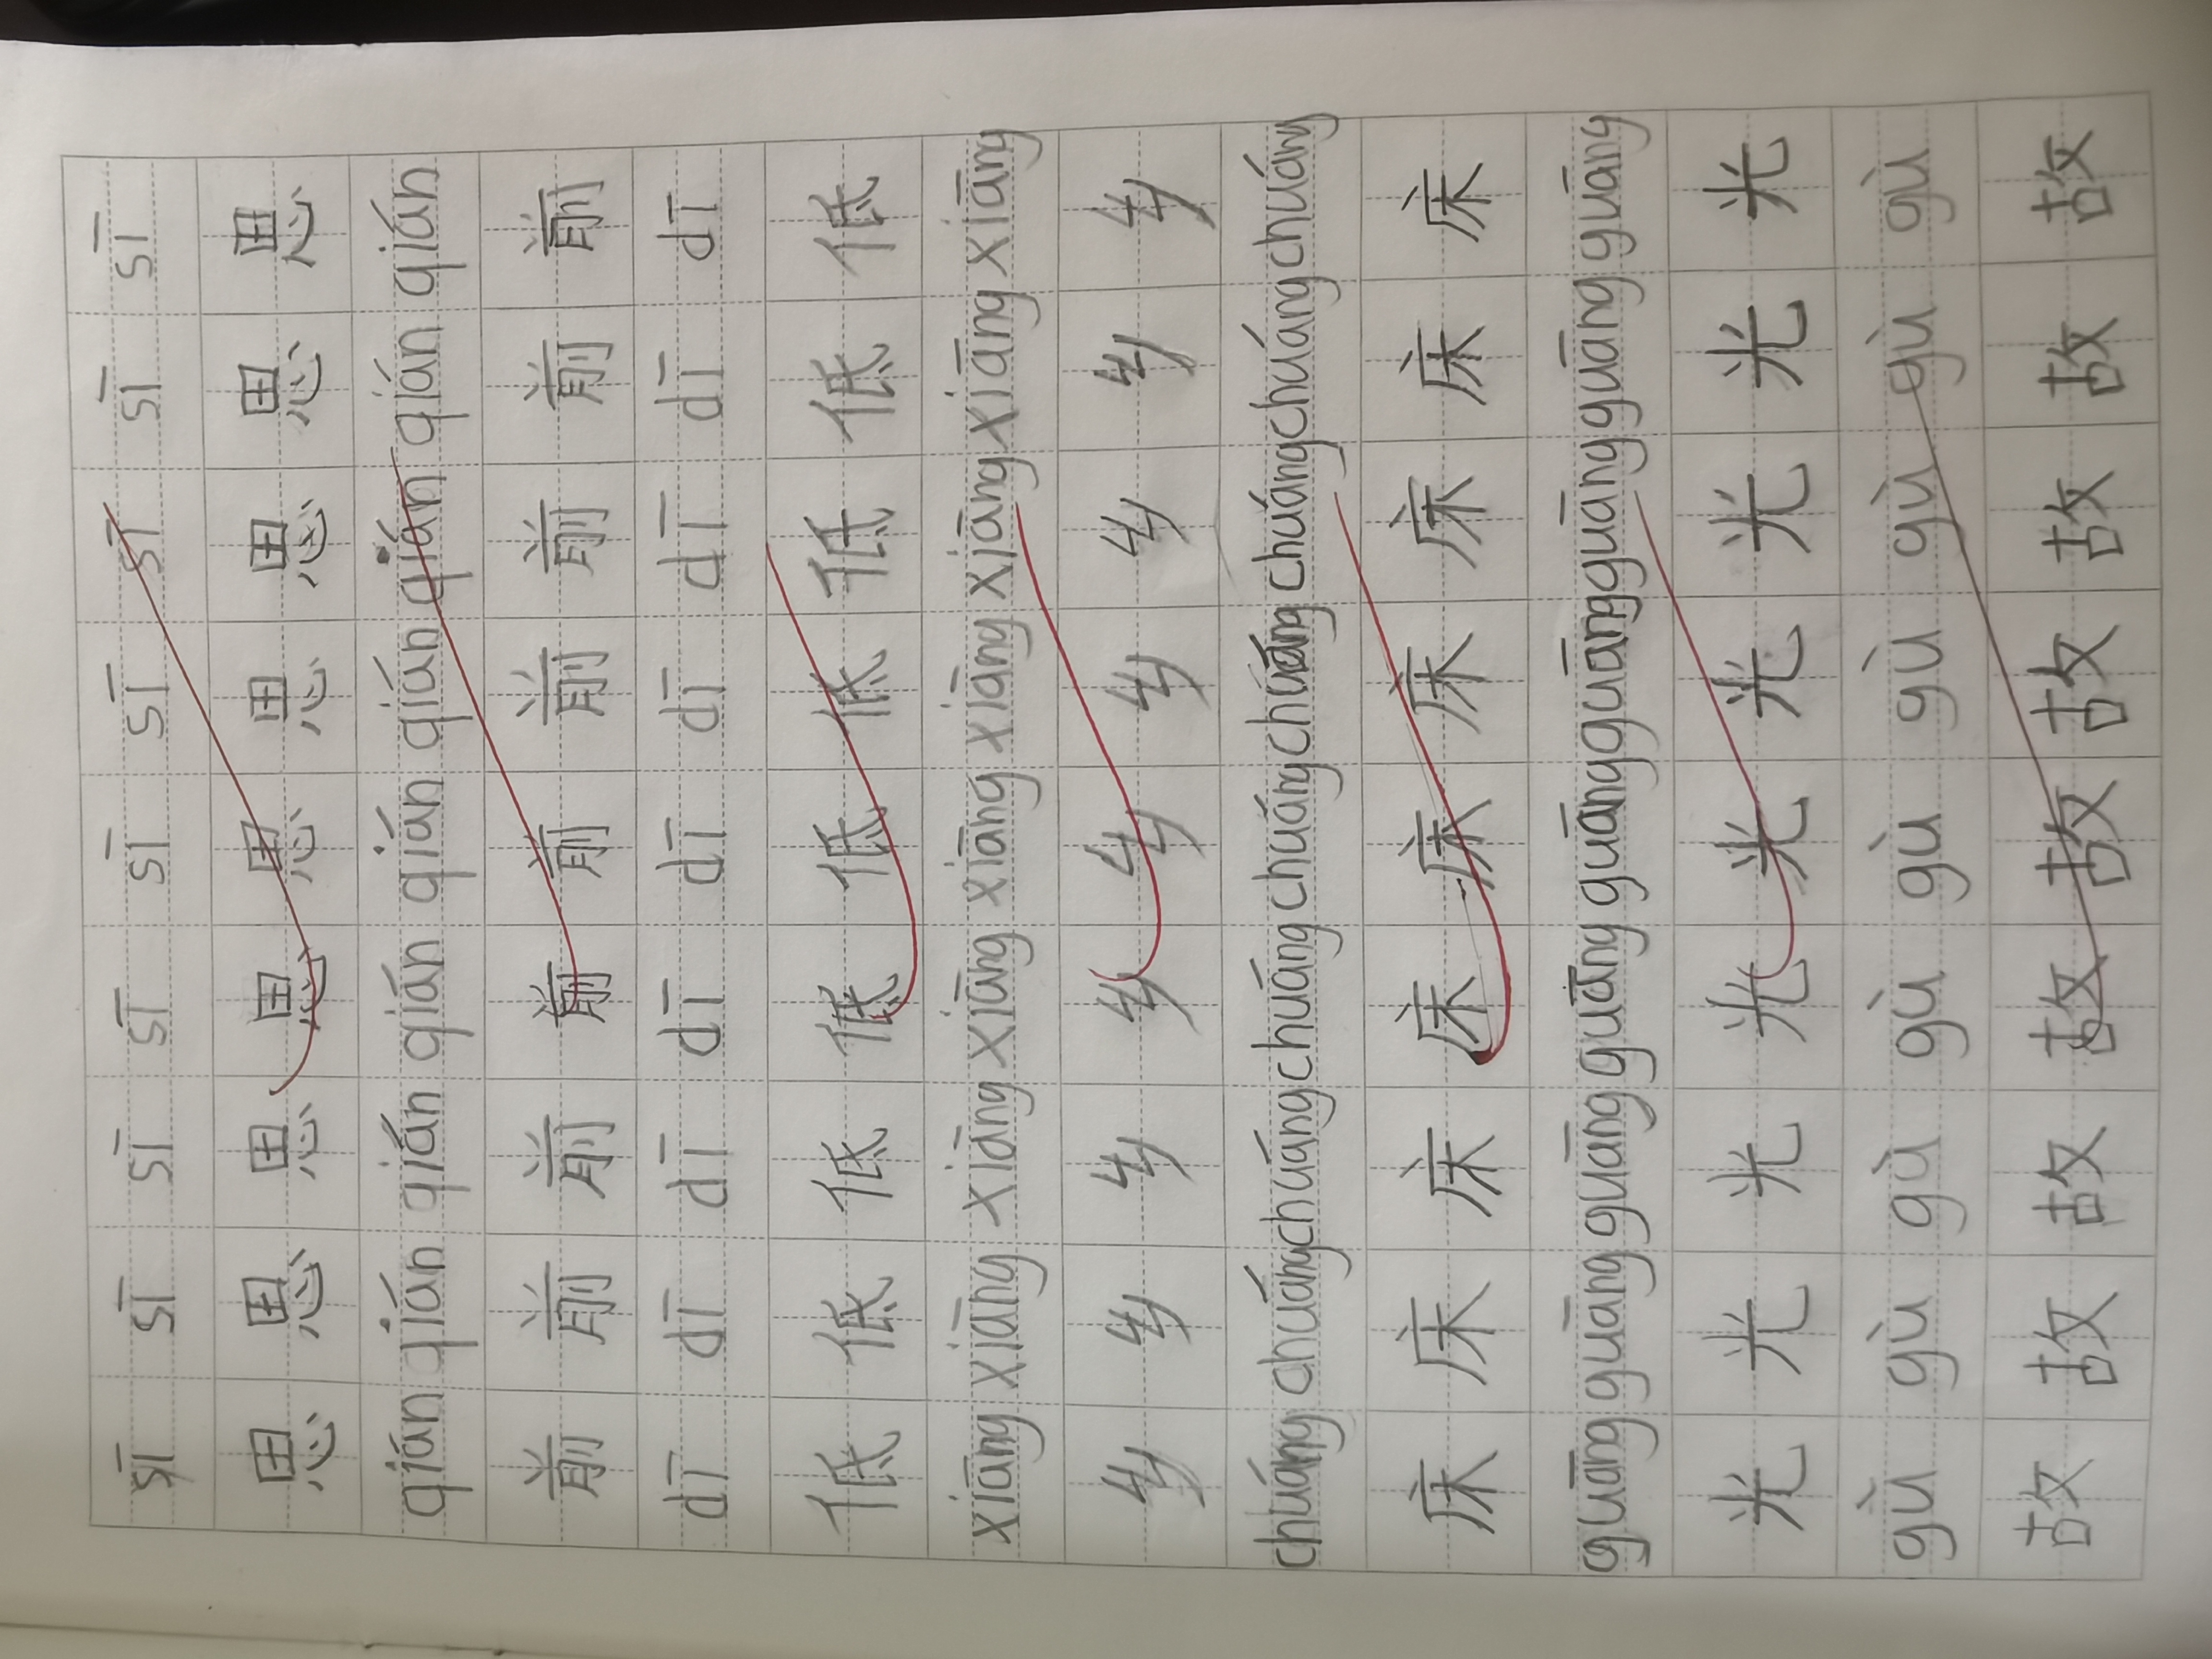 sī sī sī sī sī sī sī sī sī
思 思 思 思 思 思 思 思 思
qián qián qián qián qián qián qián qián qián
前 前 前 前 前 前 前 前 前
dī dī dī dī dī dī dī dī dī
低 低 低 低 低 低 低 低 低
xiāng xiāng xiāng xiāng xiāng xiāng xiāng xiāng xiāng
乡 乡 乡 乡 乡 乡 乡 乡 乡
chuáng chuáng chuáng chuáng chuáng chuáng chuáng chuáng chuáng
床 床 床 床 床 床 床 床 床
guāng guāng guāng guāng guāng guāng guāng guāng guāng
光 光 光 光 光 光 光 光 光
gù gù gù gù gù gù gù gù gù
故 故 故 故 故 故 故 故 故